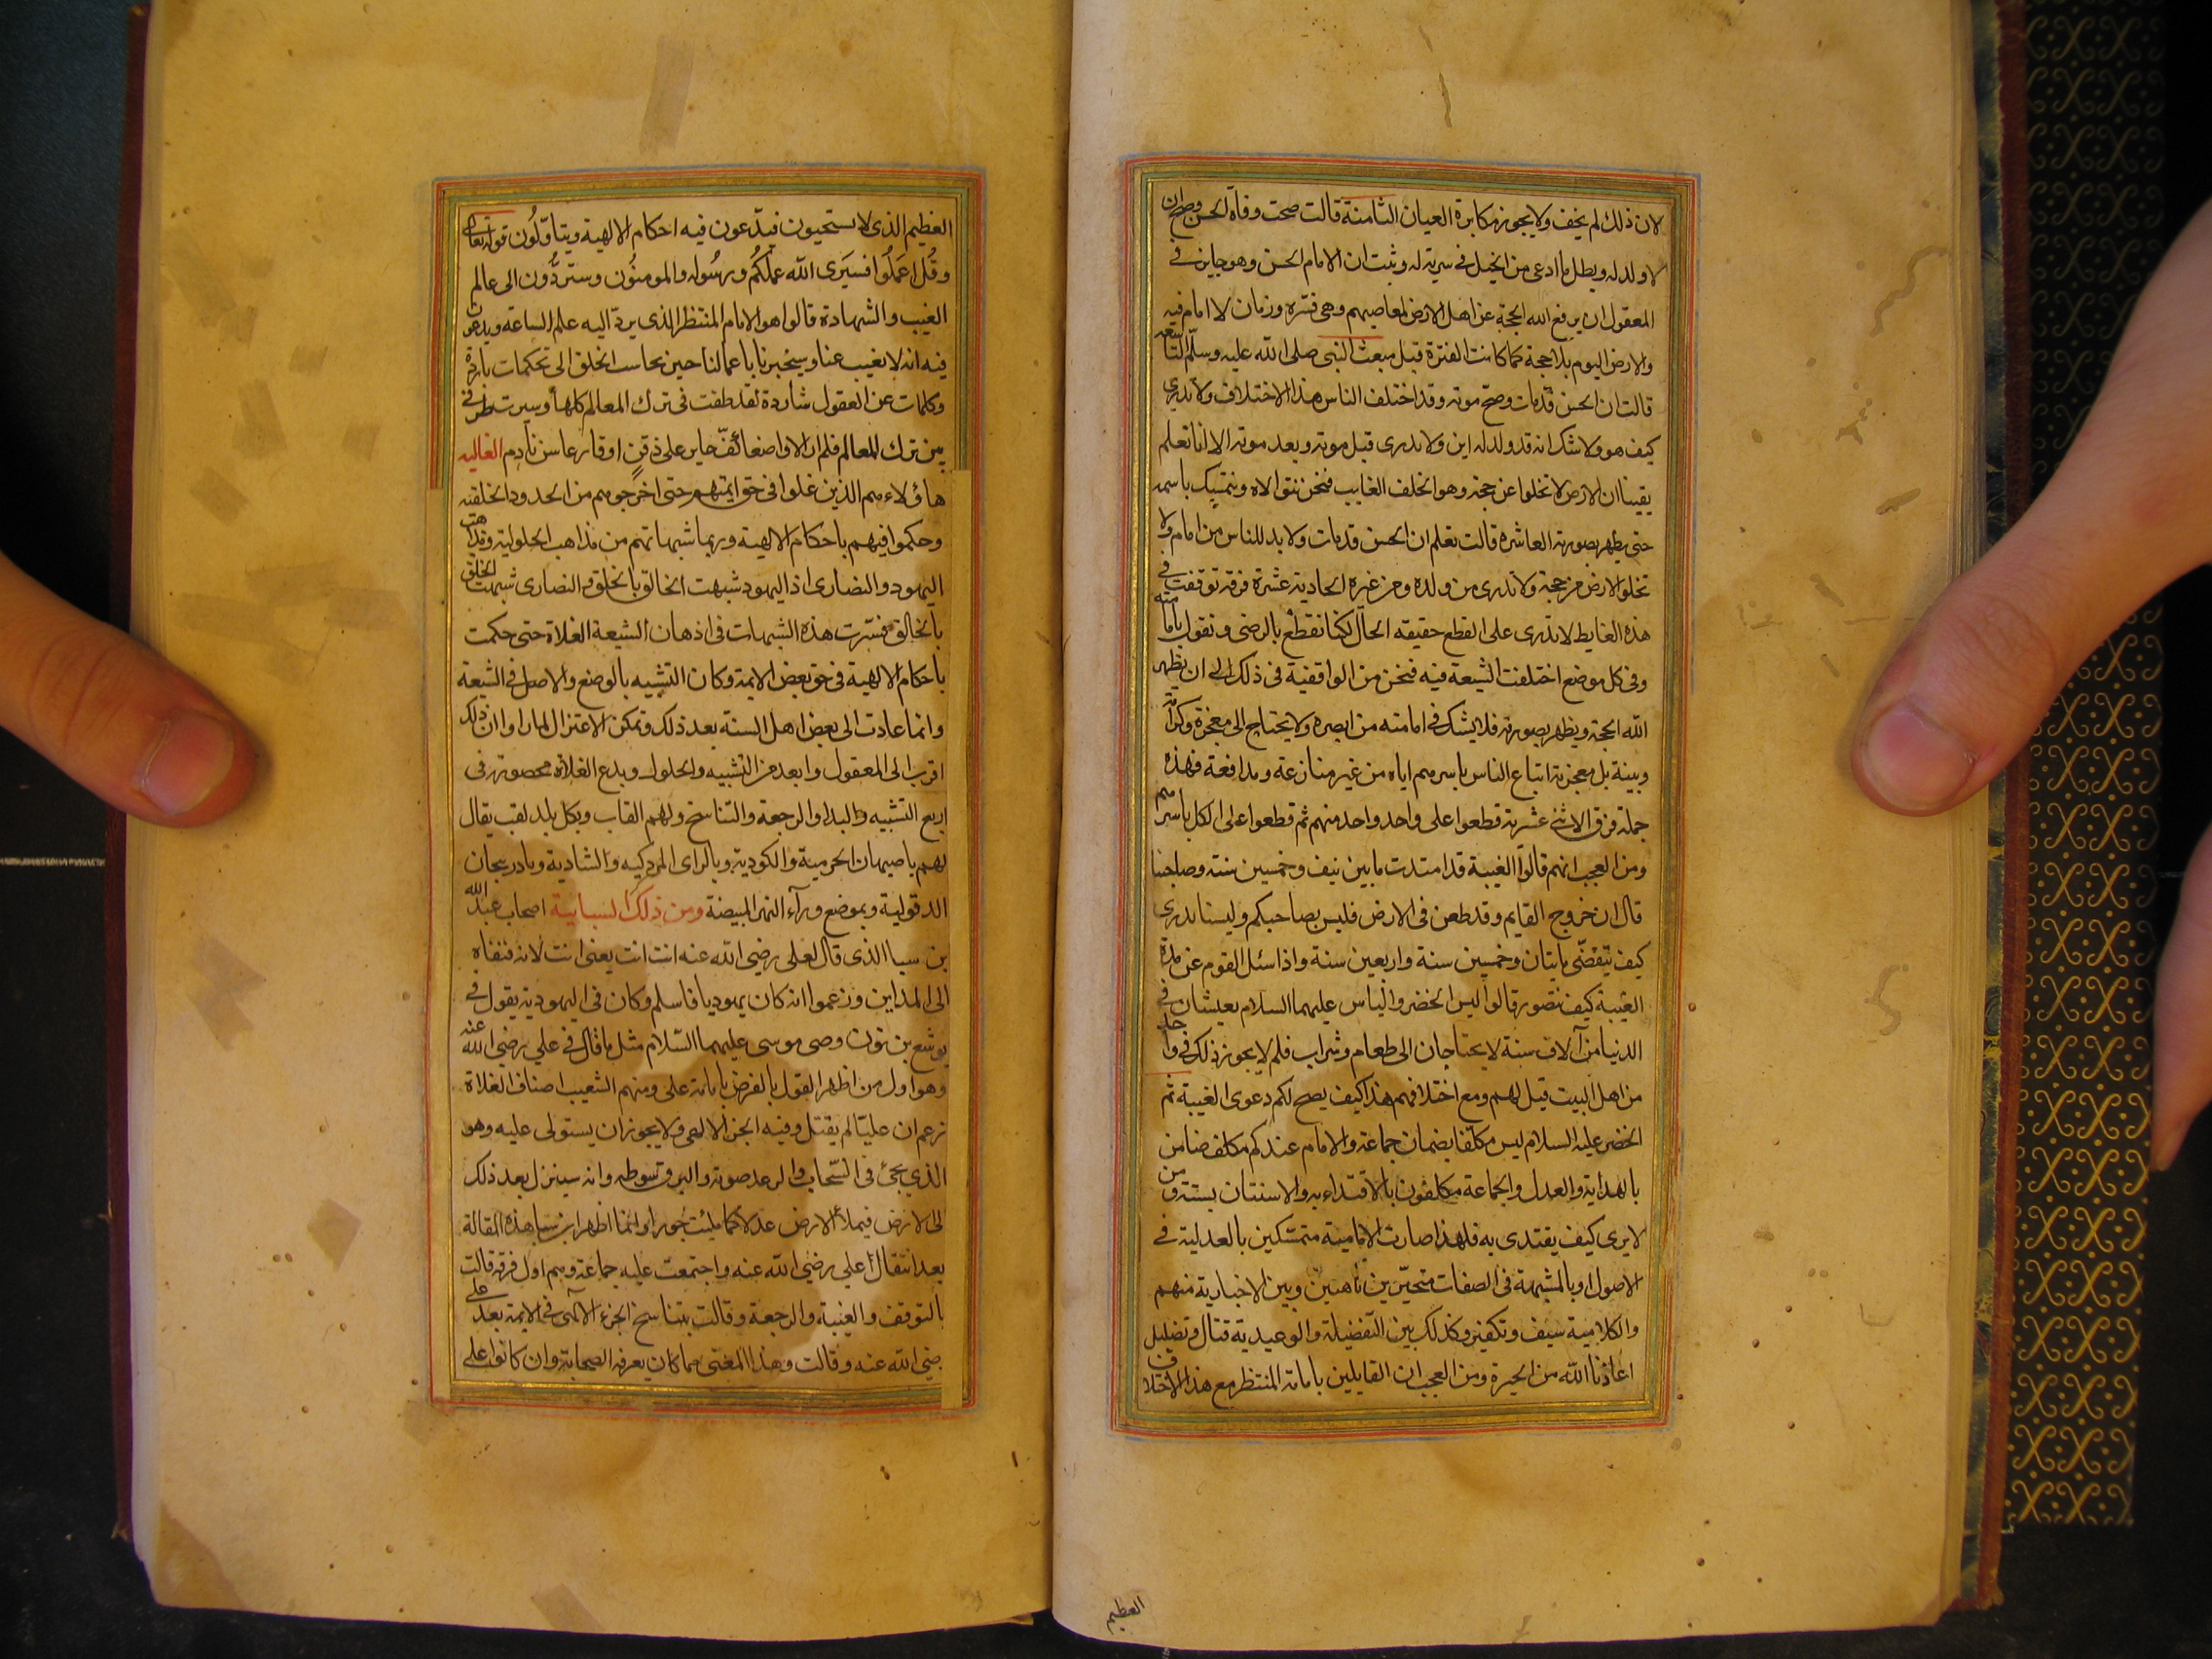 لان ذلك لم يخف ولا يجوز مكابرة العيان الثامنة قالت صحت وفاة الحسن وصح ان
لا ولد له وبطل ما ادعى من الحبل في سرية له وثبت ان الامام الحسن وهو جايز في
المعقول ان يرفع الله الحجة عن اهل الارض لمعاصيهم وهي فترة وزمان لا امام فيه
والارض اليوم بلا حجة كما كانت الفترة قبل مبعث النبي صلى الله عليه وسلم التاسعة
قالت ان الحسن قد مات وصح موته وقد اختلف الناس هذا الاختلاف ولا ندري
كيف هو ولا شك انه قد ولد له ابن ولا ندري قبل موته وبعد موته الا انا نعلم
يقينا ان الارض لا تخلوا عن حجة وهو الخلف الغايب فنحن نتولاه ونتمسك باسمه
حتى يظهر بصورته العاشرة قالت نعلم ان الحسن قد مات ولا بد للناس من امام ولا
تخلو الارض من حجة ولا ندري من ولده ومن غيره الحادية عشرة فرقة توقفت في
هذه الغايط لا ندري على القطع حقيقة الحال لكنا نقطع بالرضى ونقول بامامته
وفي كل موضع اختلفت الشيعة فيه فنحن من الواقفية في ذلك الى ان يظهر
الله الحجة ويظهر بصورته فلا يشك في امامته من ابصره ولا يحتاج الى معجزة وكرامة
وبينة بل معجزته اتباع الناس باسرهم اياه من غير منازعة ومدافعة فهذه
جملة فرق الاثنى عشرية قطعوا على واحد واحد منهم ثم قطعوا على الكل باسرهم
ومن العجب انهم قالوا الغيبة قد امتدت مابين نيف وخمسين سنة وصاحبنا
قال ان خروج القايم وقد طعن في الارض فليس بصاحبكم ولسنا ندري
كيف تتقضى مايتان وخمسين سنة واربعين سنة واذا سئل القوم عن مدة
الغيبة كيف تتصور قالوا اليس الخضر والياس عليهما السلام يعيشان في
الدنيا من آلاف سنة لا يحتاجان الى طعام وشراب فلم لا يجوز ذلك في واحد
من اهل البيت قيل لهم ومع اختلافهم هذا كيف يصح لكم دعوى الغيبة ثم
الخضر عليه السلام ليس مكلفا بضمان جماعة والامام عندكم مكلف ضامن
بالهداية والعدل والجماعة مكلفون بالاقتداء به والاستنان بسنته ومن
لا يرى كيف يقتدى به فلهذا صارت الامامية متمسكين بالعدلية في
الاصول او بالمشبهة في الصفات متحيرين تائهين وبين الاخبارية منهم
والكلامية سيف وتكفير وكذلك بين التفضيلة والوعيدية قتال وتضليل
اعاذنا الله من الحيرة ومن العجب ان القايلين بامامة المنتظر مع هذا الاختلاف
العظيم
العظيم الذي لا يستحيون فيدّعون فيه احكام الالهية ويتاوّلون قوله تعالى
وقل اعملوا فسيرى الله عملكم ورسوله والمومنون وستردّون الى عالم
الغيب والشهادة قالوا هو الامام المنتظر الذي يردّ اليه علم الساعة ويدعون
فيه انه لا يغيب عنا وسيخبرنا باعمالنا حين يحاسب الخلق الى تحكمات باردة
وكلمات عن العقول شاردة لقد طفت في ترك المعالم كلها وسيرت طرفي
بين ترك المعالم فلم ار الا واضعا كفّ حاير على ذقن او قارعا سن نادم الغاليه
هاؤلاء هم الذين غلوا في حق ايمتهم حتى اخرجوهم من الحدود الخلقية
وحكموا فيهم باحكام الالهية وربما شبهاتهم من مذاهب الحلولية ومذاهب
اليهود والنصارى اذ اليهود شبهت الخالق بالخلق والنصارى شبهت الخلق
بالخالق فسرت هذه الشبهات في اذهان الشيعة الغلاة حتى حكمت
باحكام الالهية في حق بعض الايمة وكان التشبيه بالوضع والاصل في الشيعة
وانما عادت الى بعض اهل السنة بعد ذلك وتمكن الاعتزال لما راوا ان ذلك
اقرب الى المعقول وابعد من التشبيه والحلول وبدع الغلاة محصورة في
اربع التشبيه والبدا والرجعة والتناسخ ولهم القاب وبكل بلد لقب يقال
لهم باصبهان الخرمية والكودية وبالراى المزدكيه والشادية وبادربيجان
الدقولية وبموضع ورآء النهر المبيضة ومن ذلك السبايية اصحاب عبد الله
بن سبا الذي قال لعلي رضي الله عنه انت انت يعني انت لاله فنفاه
الى المداين وزعموا انه كان يهوديا فاسلم وكان في اليهودية يقول في
يوشع بن نون وصي موسى عليهما السلام مثل ما قال في علي رضي الله عنه
وهو اول من اظهر القول بالفرض بامامة علي ومنهم الشعيب اصناف الغلاة
زعم ان عليّا لم يقتل وفيه الجزء الالهي ولا يجوز ان يستولى عليه وهو
الذي يجئ في السّحاب والرعد صوته والبرق سوطه وانه سينزل بعد ذلك
الى الارض فيملأ الارض عدلا كما مليئت جورا وانما اظهر ابن سبا هذه المقالة
بعد انتقال علي رضي الله عنه واجتمعت عليه جماعة وهم اول فرقة قالت
بالتوقف والغيبة والرجعة وقالت بتناسخ الجزء الالهي في الايمة بعد علي
رضي الله عنه وقالت وهذا المعنى مما كان يعرفه الصحابة وان كانوا على